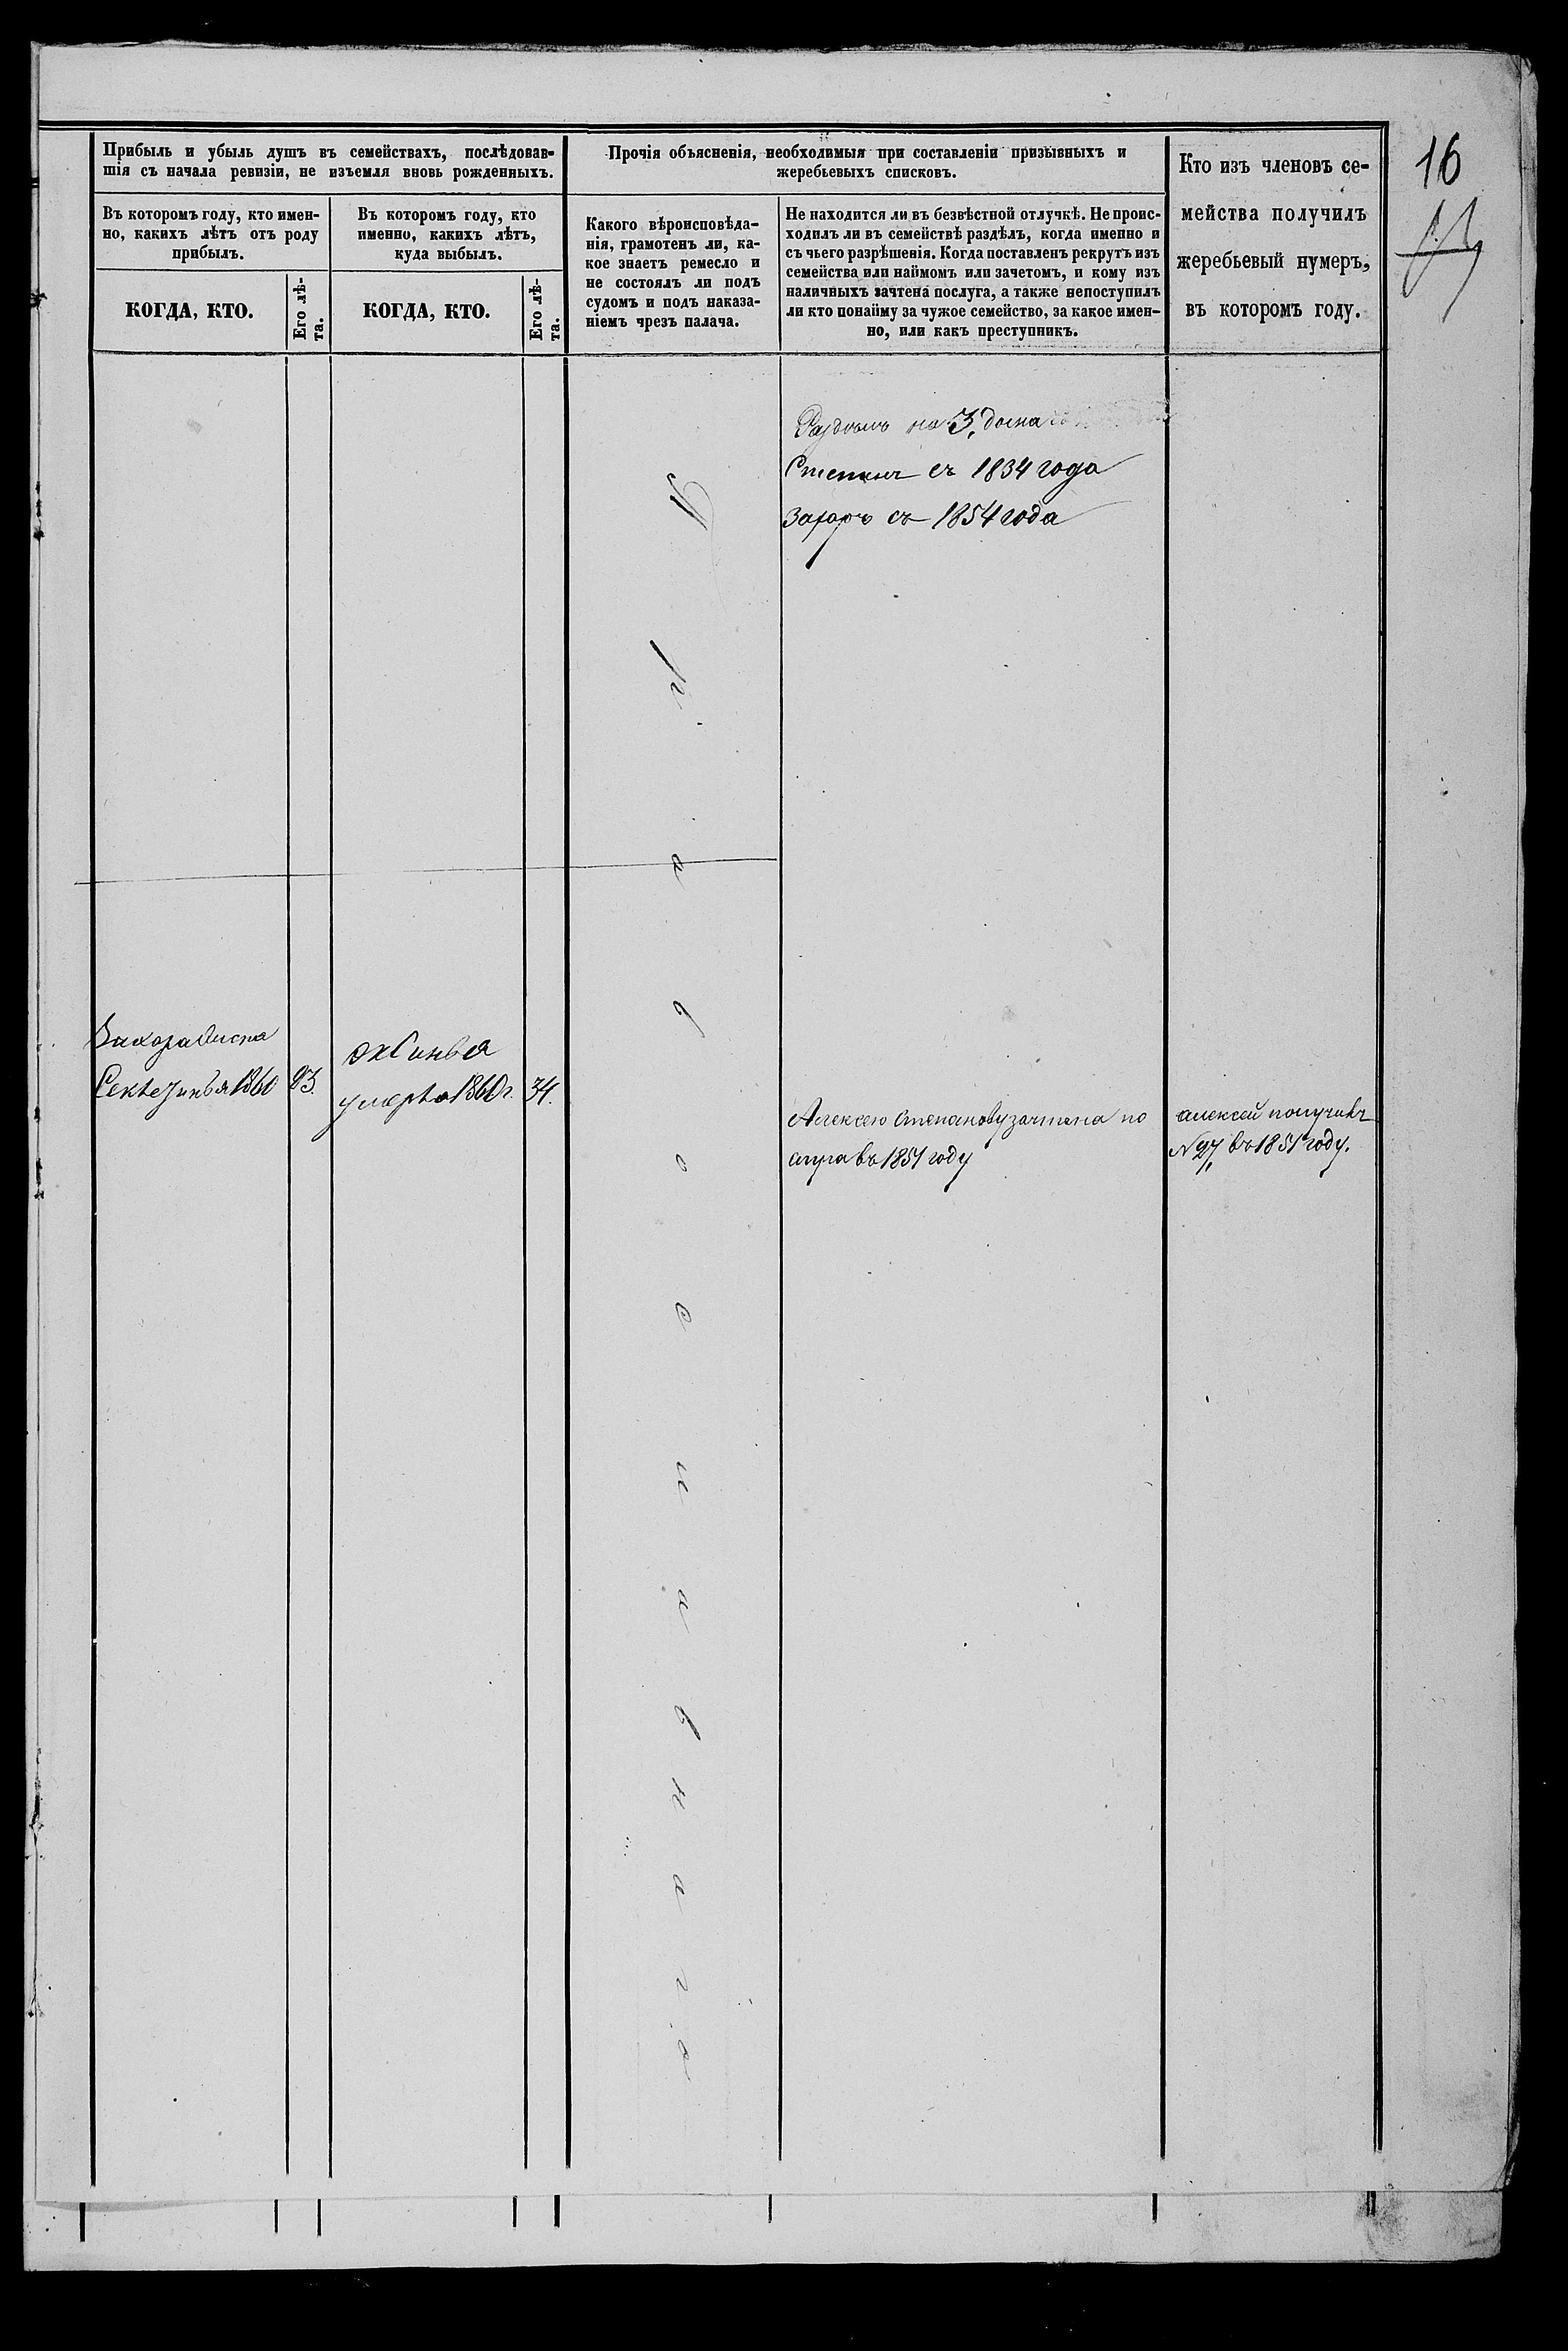 16
Прибыль и убыль душъ въ семействахъ, послѣдовав-
шія съ начала ревизіи, не изъемля вновь рожденныхъ.
Въ которомъ году, кто имен-
но, какихъ лѣтъ отъ роду
прибылъ.
КОГДА, КТО.
Его лѣ-
та.
Въ которомъ году, кто
именно, какихъ лѣтъ,
куда выбылъ.
КОГДА, КТО.
Его лѣ-
та.
Прочія объясненія, необходимыя при составленіи призывныхъ и
жеребьевыхъ списковъ.
Какого вѣроисповѣда-
нія, грамотенъ ли, ка-
кое знаетъ ремесло и
не состоялъ ли подъ
судомъ и подъ наказа-
ніемъ чрезъ палача.
Не находится ли въ безвѣстной отлучкѣ. Не проис-
ходилъ ли въ семействѣ раздѣлъ, когда именно и
съ чьего разрѣшенія. Когда поставленъ рекрутъ изъ
семейства или наймомъ или зачетомъ, и кому изъ
наличныхъ зачтена послуга, а также непоступилъ
ли кто понайму за чужое семейство, за какое имен-
но, или какъ преступникъ.
Кто изъ членовъ се-
мейства получилъ
жеребьевый нумеръ,
въ которомъ году.
на 3,
Степанъ съ 1834 года
Захаръ съ 1854 года
Православнаго
Захора
1860
умерла 1860 г. 34.
Алексею Степанову зачтена по
слуга въ 1851 году
алексей получивъ
N 27, въ 1851 году.